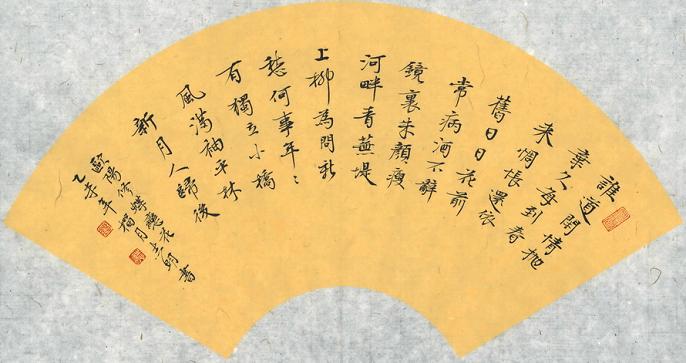 誰道閒情抛
棄久每到春
来惆悵還依
舊日日花前
常病酒不辭
鏡裏朱顏瘦
河畔青蕪堤
上柳為問新
愁何事年〻
有獨立小橋
風滿袖平林
新月人歸後
歐陽修蝶戀花
乙未年榴月書